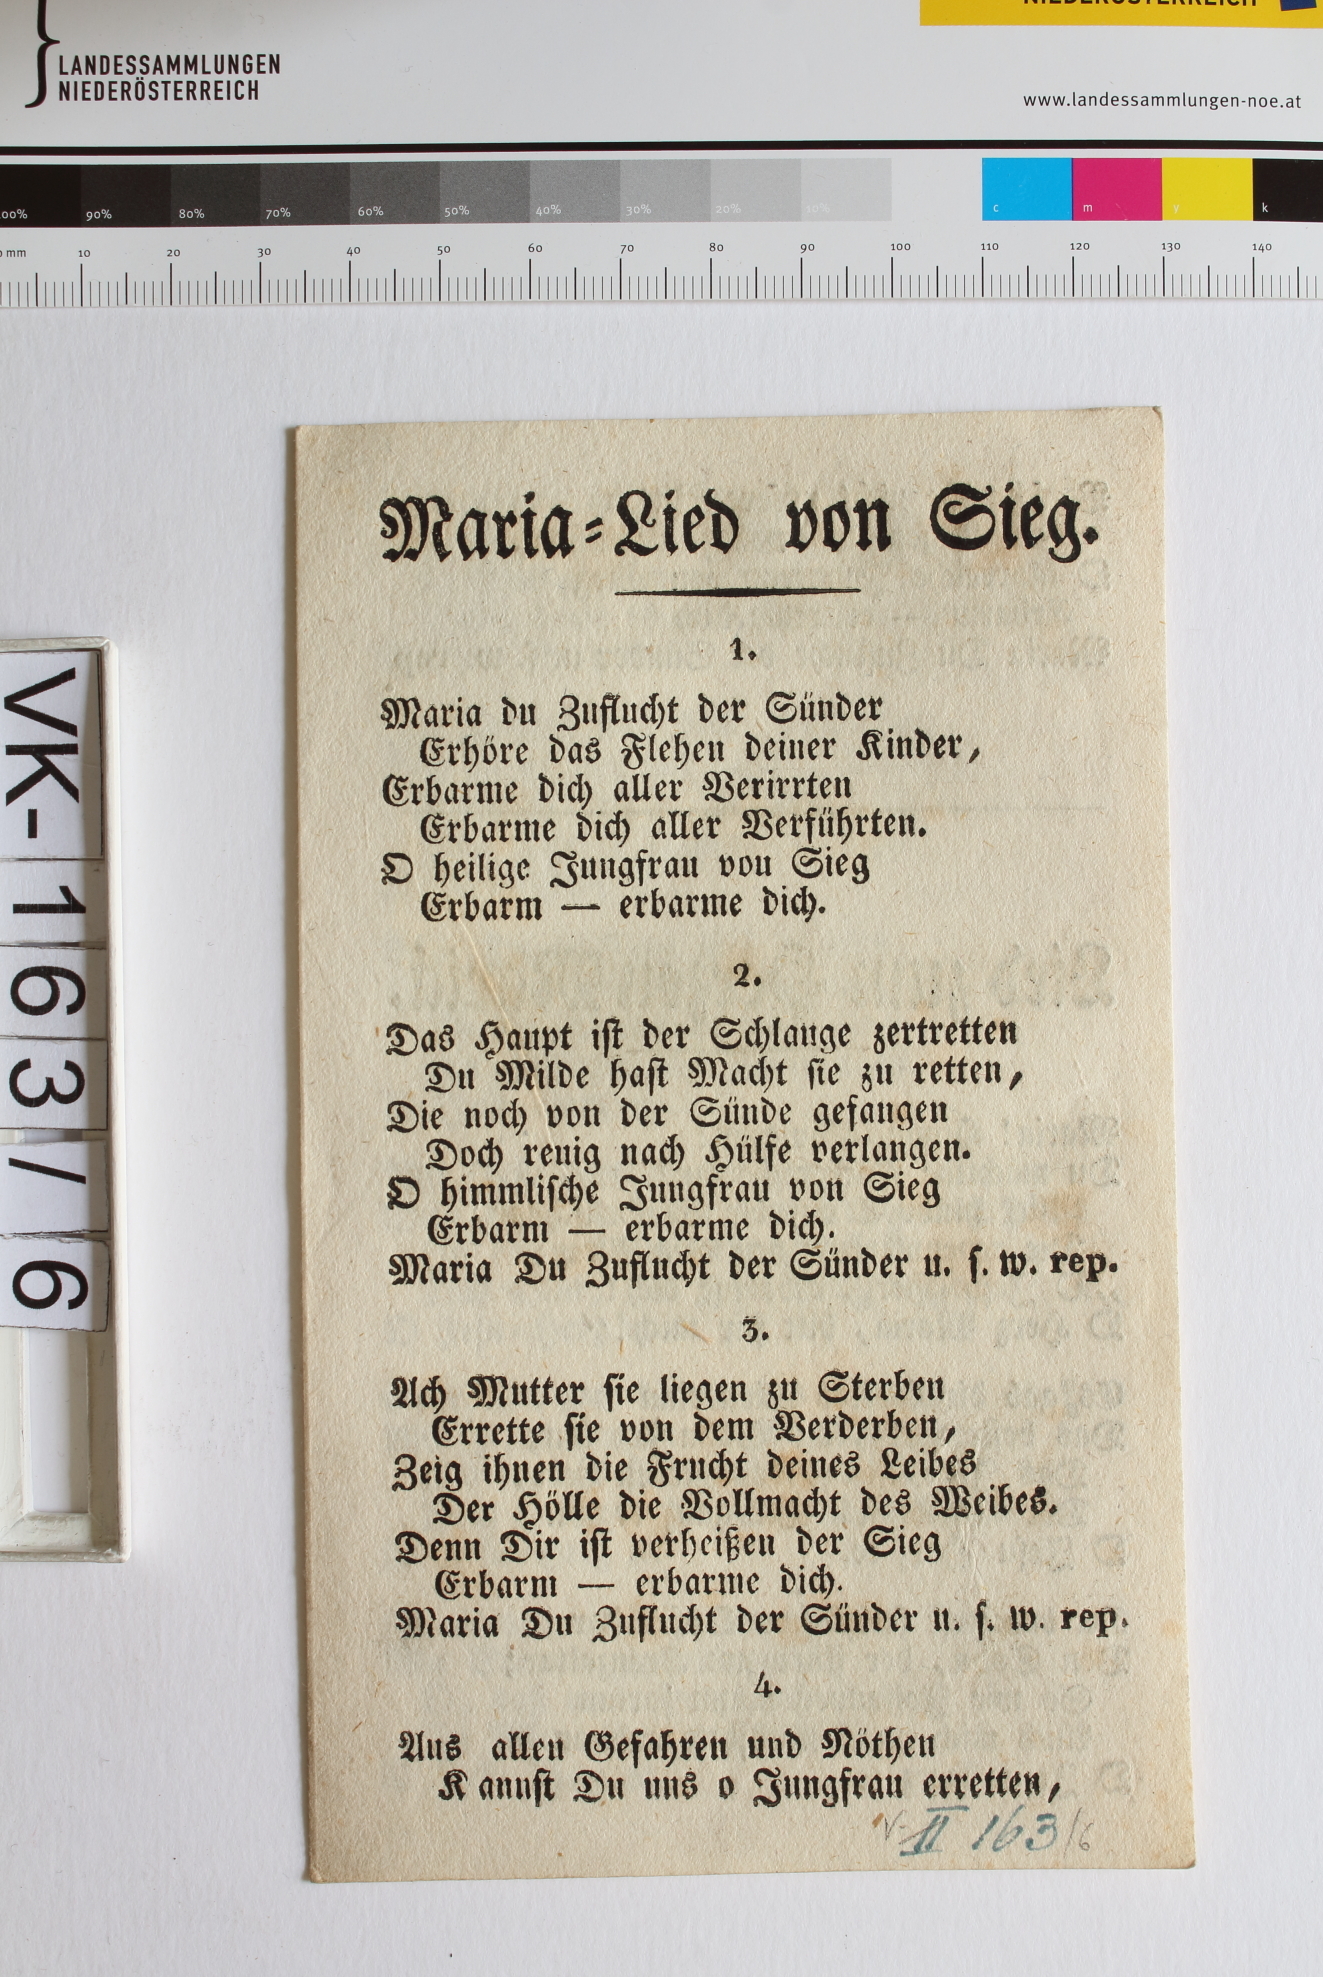 NIEDERÖSTERREICH
LANDESSAMMLUNGEN
NIEDERÖSTERREICH
www.landessammlungen-noe.at
90% 80% 70% 60% 50% 40% 30% 20% 10% c m y k
0 mm 10 20 30 40 50 60 70 80 90 100 110 120 130 140
Maria-Lied von Sieg.
1.
Maria du Zuflucht der Sünder
Erhöre das Flehen deiner Kinder,
Erbarme dich aller Verirrten
Erbarme dich aller Verführten.
O heilige Jungfrau von Sieg
Erbarm — erbarme dich.
2.
Das Haupt ist der Schlange zertretten
Du Milde hast Macht sie zu retten,
Die noch von der Sünde gefangen
Doch reuig nach Hülfe verlangen.
O himmlische Jungfrau von Sieg
Erbarm — erbarme dich.
Maria Du Zuflucht der Sünder u. s. w. rep.
3.
Ach Mutter sie liegen zu Sterben
Errette sie von dem Verderben,
Zeig ihnen die Frucht deines Leibes
Der Hölle die Vollmacht des Weibes.
Denn Dir ist verheißen der Sieg
Erbarm — erbarme dich.
Maria Du Zuflucht der Sünder u. s. w. rep.
4.
Aus allen Gefahren und Nöthen
Kannst Du uns o Jungfrau erretten,
V-II 163/6
VK-163/6